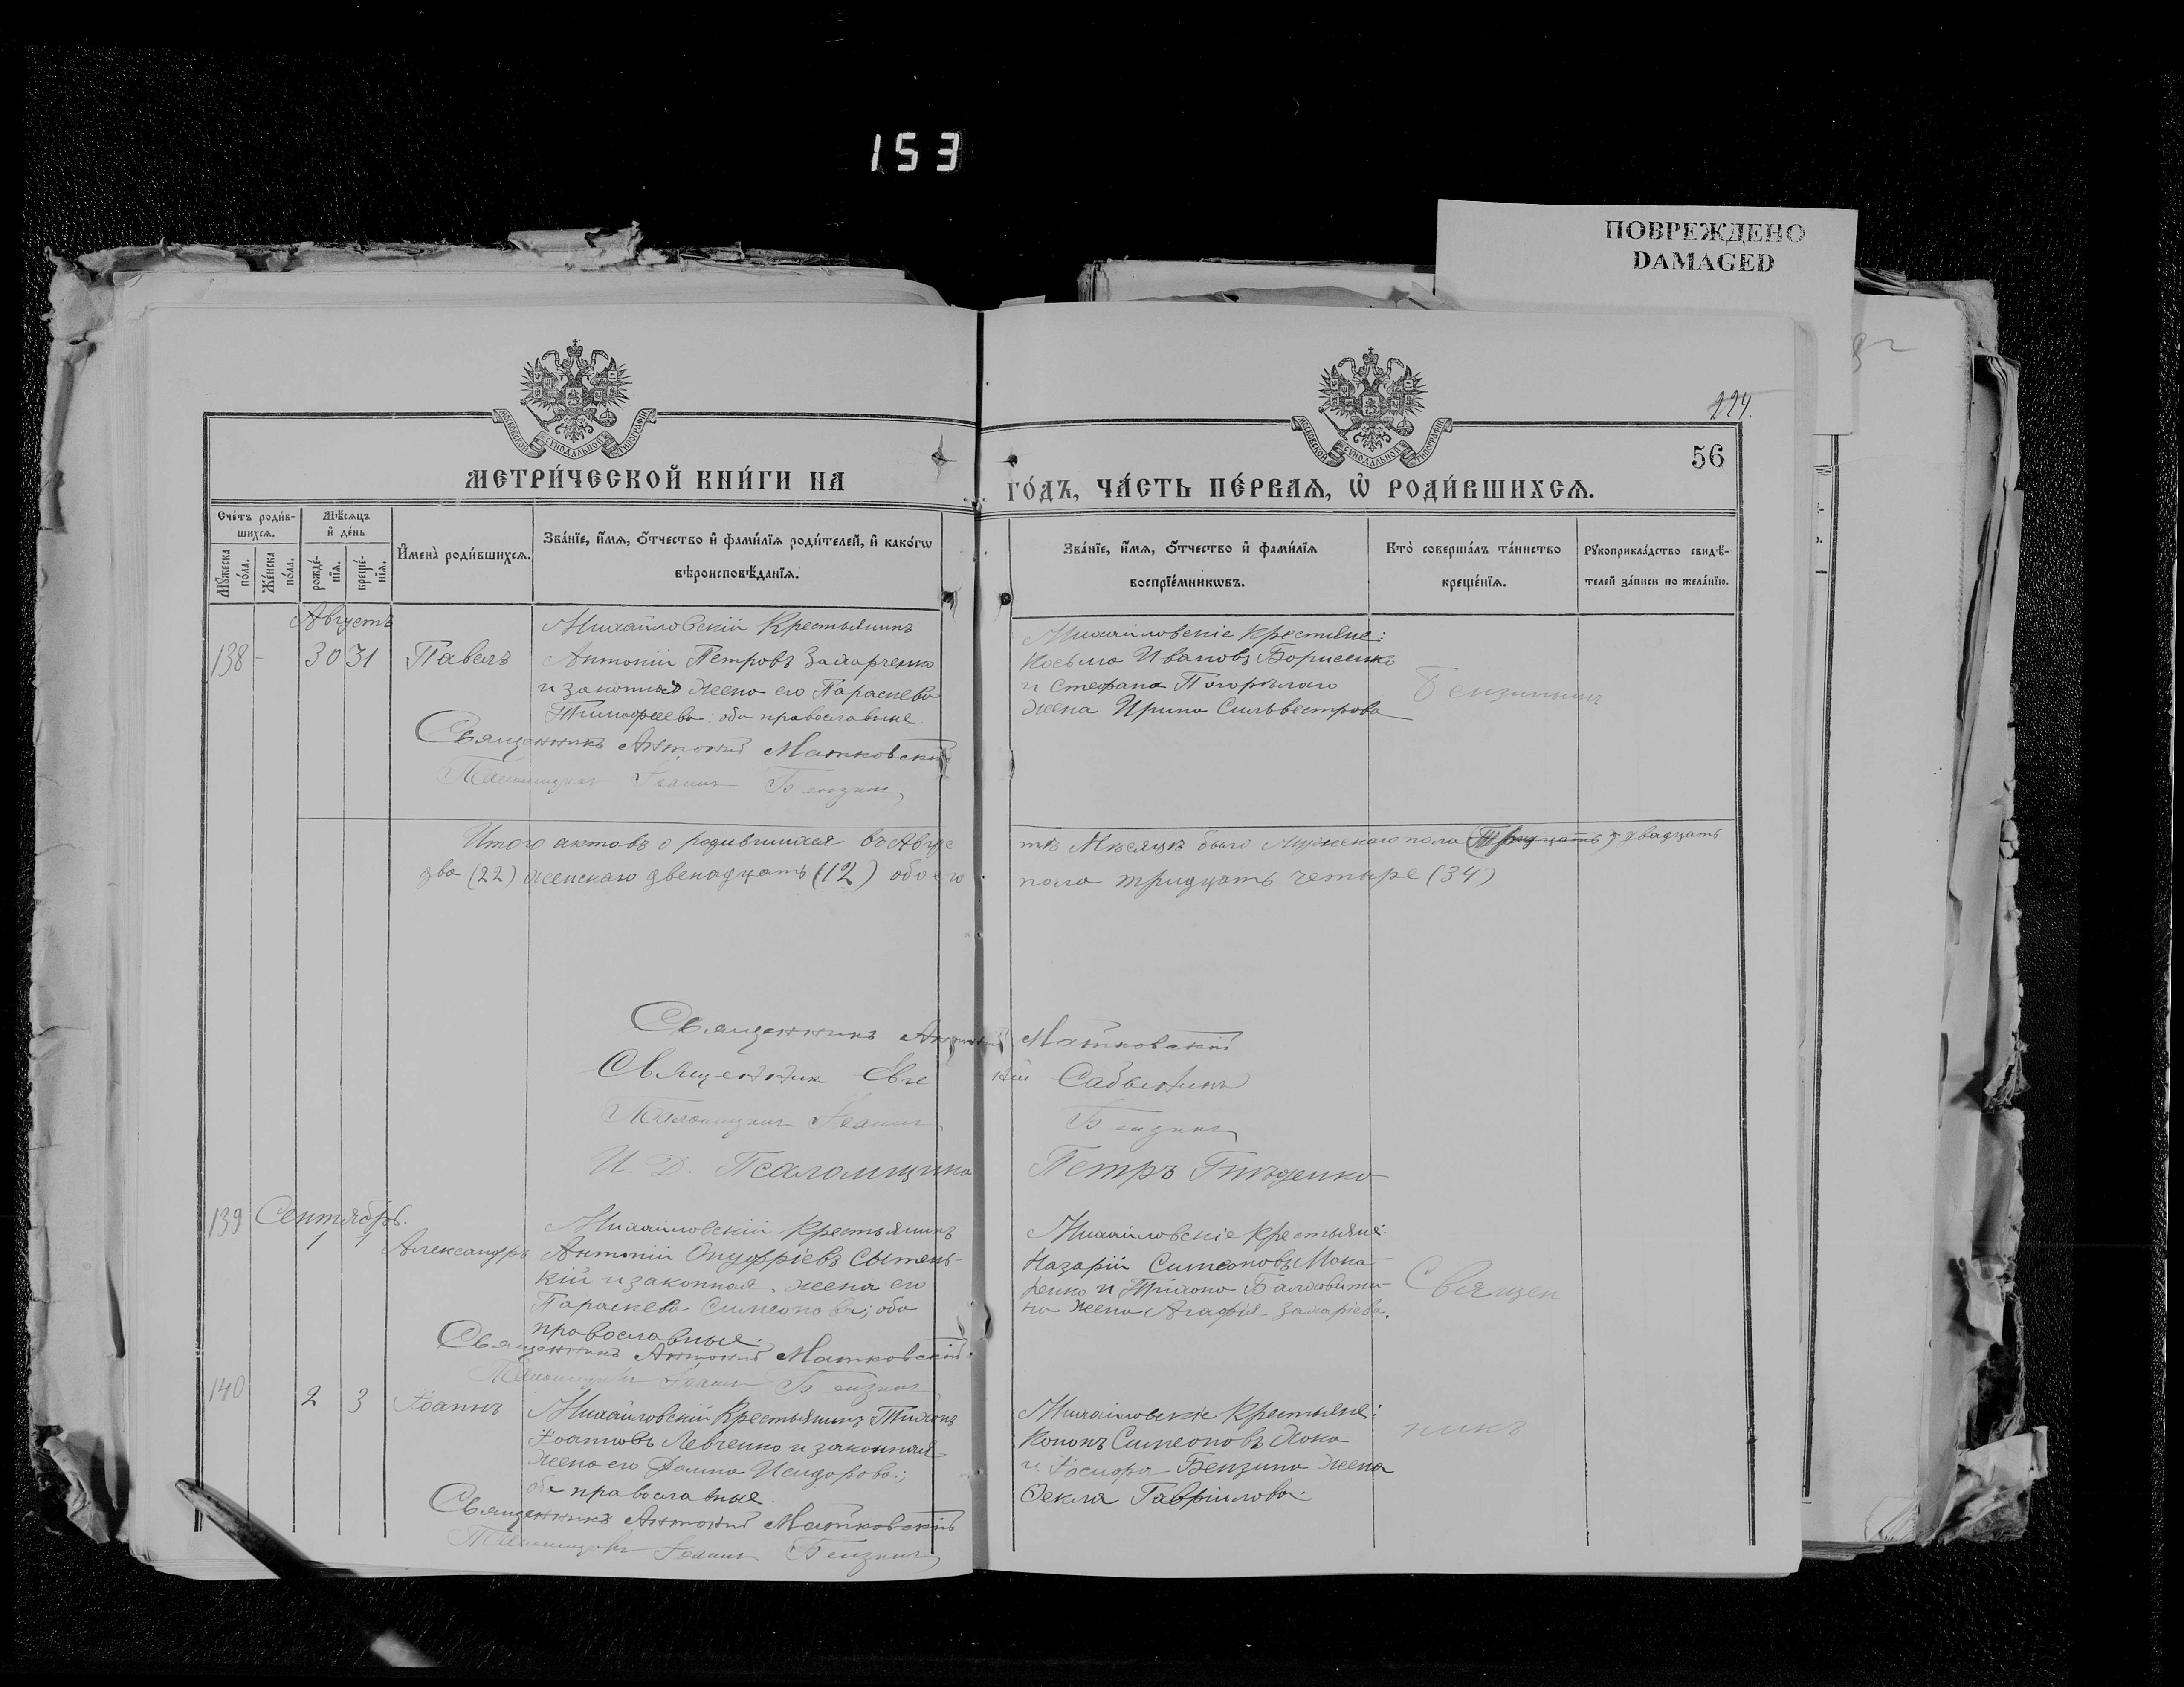 153
ПОВРЕЖДЕНО
DAMAGED
224.
56
МОСКОВСКОЙ СѴНОДАЛЬНОЙ ТИПОГРАФІИ
МОСКОВСКОЙ СѴНОДАЛЬНОЙ ТИПОГРАФІИ
МЕТРИ́ЧЕСКОЙ КНИ́ГИ НА
ГО́ДЪ, ЧА́СТЬ ПЕ́РВАѦ, Ѡ҆ РОДИ́ВШИХСѦ.
Сче́тъ роди́в-
шихсѧ.
Мѣ́сѧцъ
и҆ де́нь
Мꙋ́жеска
по́ла.
Же́нска
по́ла.
рожде́-
нїѧ.
креще́-
нїѧ.
И҆мена̀ роди́вшихсѧ.
Зва́нїе, и҆́мѧ, ѻ҆́тчество и҆ фами́лїѧ роди́телей, и҆ како́гѡ
вѣроисповѣ́данїѧ.
Зва́нїе, и҆́мѧ, ѻ҆́тчество и҆ фами́лїѧ
воспрїе́мникѡвъ.
Кто̀ соверша́лъ та́инство
креще́нїѧ.
Рꙋкоприкла́дство свидѣ́-
телей за́писи по жела́нїю.
Августъ
138 - 30 31 Павелъ
Михайловскій Крестьянинъ
Антоній Петровъ Захарченко
и законная жена его Параскева
Тимофеева: оба православные.
Священникъ Антоній Матковскій
Псаломщикъ Іоаннъ Бензинъ
Михайловскіе Крестьяне:
Косьма Ивановъ Борисенко
и Стефана Погорѣлаго
жена Ирина Сильвестрова
Итого актовъ о родившихся въ Авгус
тѣ Мѣсяцѣ было мужескаго пола (Тридцать) двадцать
два (22) женскаго двенадцать (12) обоего
пола тридцать четыре (34)
Священникъ Антоній Матковскій
Священник
Псаломщикъ Іоаннъ Бензинъ
И. Д. Псаломщика Петръ
139 Сентябрь.
1 1 Александръ
Михайловскій Крестьянинъ
Антоній Онуфріевъ Сытень-
кій и законная жена его
Параскева Симеонова; оба
православные.
Священникъ Антоній Матковскій
Псаломщикъ Іоаннъ Бензинъ
Михайловскіе Крестьяне:
Назарій Симеоновъ Мака-
ренко и Тихона
жена Агафія Захаріева.
Священ
140 2 3 Іоаннъ
Михайловскій Крестьянинъ Тихонъ
Іоанновъ Левченко и законная
жена его Домна Исидорова;
оба православные.
Священникъ Антоній Матковскій
Псаломщикъ Іоаннъ Бензинъ
Михайловскіе Крестьяне:
Кононъ Симеоновъ
и Іосифа Бензина жена
Ѳекла Гавріилова.
никъ